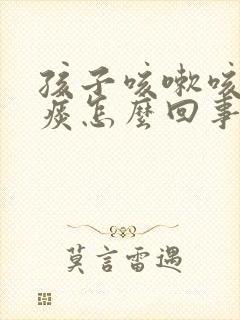 孩子咳嗽咳
痰怎麼回事
莫言雷遇